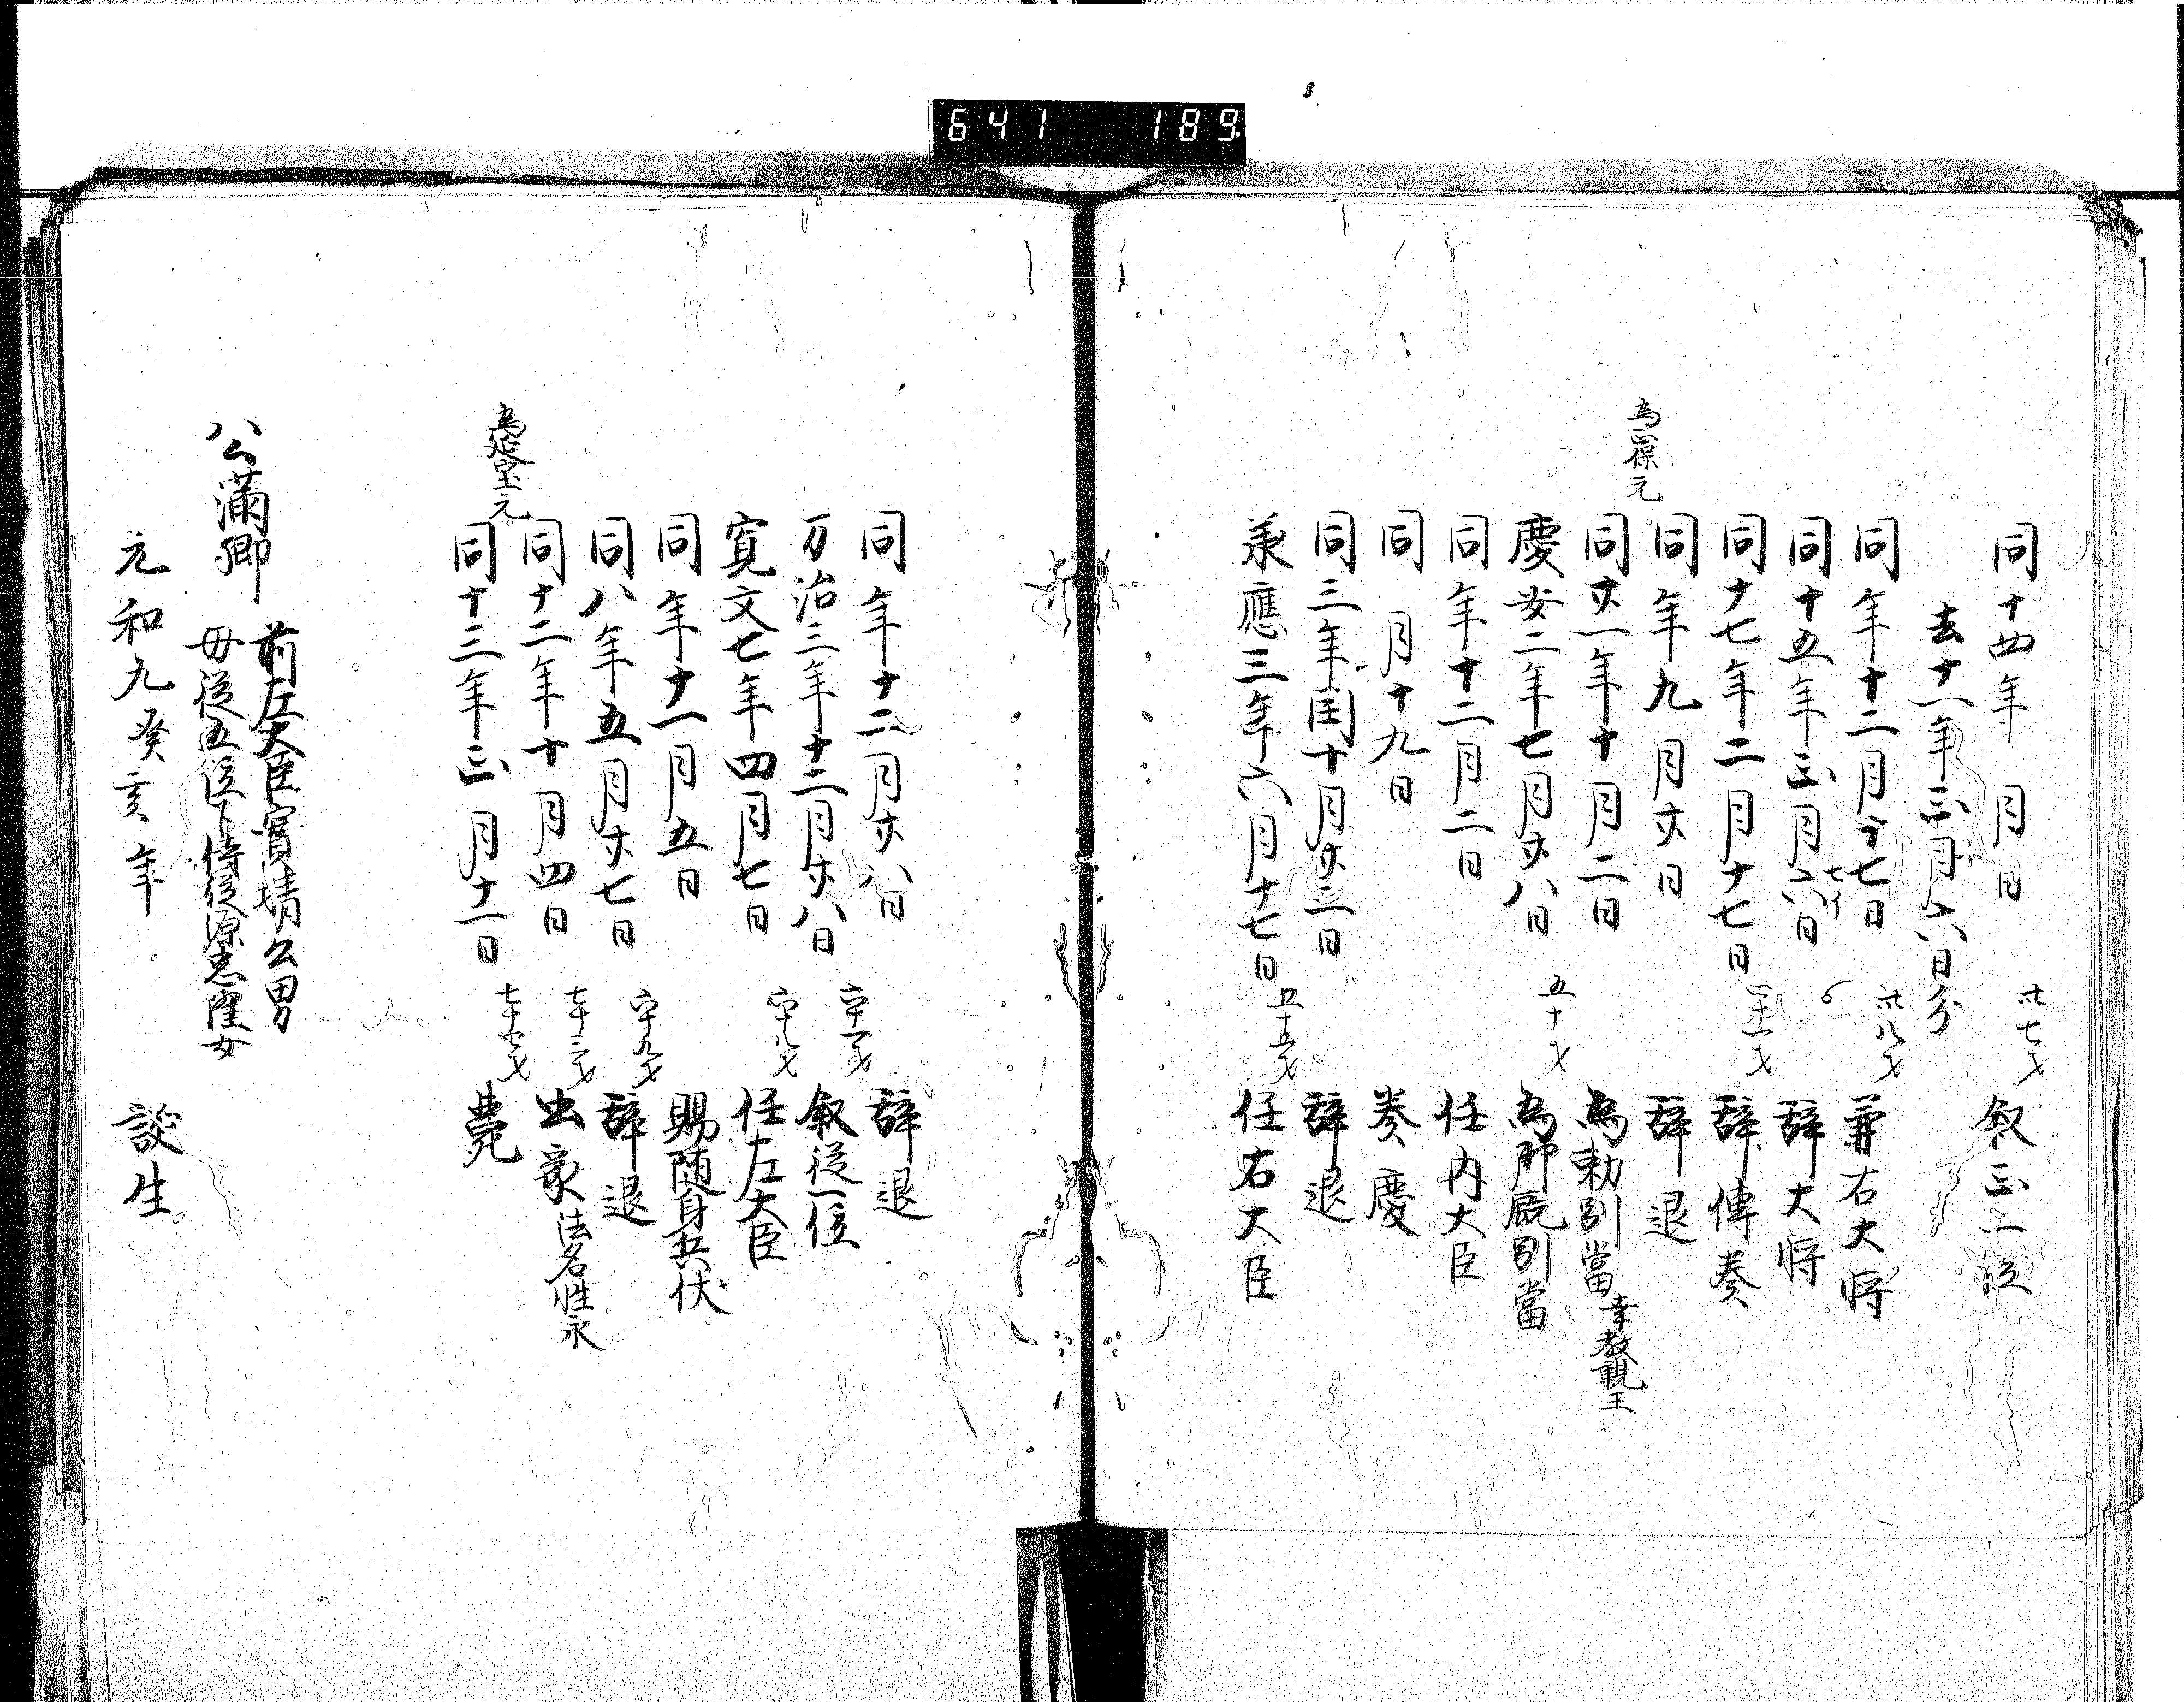 641 189
同十四年 月 日 卅七才 叙正二位
去十一年正月六日分
同年十二月廿七日 卅八才 兼右大将
同十五年正月六日 辞大将
同十七年二月十七日 辞傳奏
同年九月廿日 辞退
為正保元
同廿一年十月二日 為勅別當 幸教親王
慶安二年七月廿八日 五十才 為御厩別當
同年十二月二日 任内大臣
同 月十九日 奏慶
同三年閏十月廿三日 辞退
承應三年六月十七日 五十五才 任右大臣
同年十二月廿八日 辞退
万治三年十二月廿八日 六十一才 叙從一位
寛文七年四月七日 六十八才 任左大臣
同年十一月五日 賜随身兵仗
同八年五月廿七日 六十九才 辞退
同十二年十月四日 七十三才 出家 法名性永
為延宝元
同十三年正月十一日 七十四才 薨
公満卿 前左大臣實晴公男
母從五位下侍從源忠隆女
元和九癸亥年 誕生